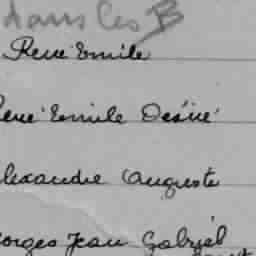 dans les B
René Emile
René Emile Désiré
Alexandre Auguste
Georges Jean Gabriel